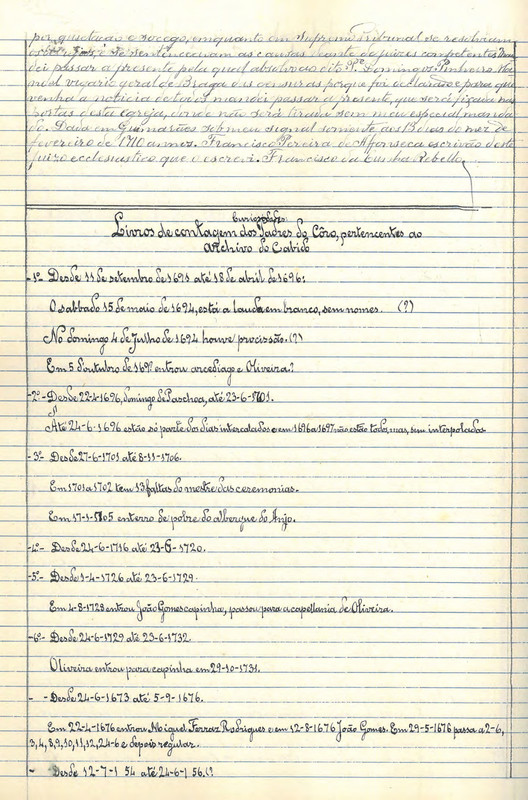 por quietação e socego, emquanto em Supremo Tribunal se resolviam
e sentenceavam as causas diante de juizes competentes Man
dei passar a presente pela qual absolvo ao dito P.e Domingos Pinheiro
vigario geral de Braga das censuras porque foi declarado e para que
venha á noticia de todos mandei passar a presente, que será fixada nas
portas desta d'onde não será tirada sem meu especial manda
do. Dada em Guimarães sob meu signal sómente aos 13 dias do mez de
fevereiro de 1710 annos. Francisco Pereira de Affonseca escrivão deste
juizo ecclesiastico que o escrevi. Francisco da Cunha Rebello
Curiosidades:
Livros de contagem dos Padres do Côro, pertencentes ao
archivo do Cabido
-1º- Desde 11 de setembro de 1691 até 18 de abril de 1696:
O sabbado 15 de maio de 1694, está a lauda em branco, sem nomes. (?)
No domingo 4 de Julho de 1694 houve procissão. (?)
Em 5 d'outubro de 169 entrou arcediago e Oliveira?
-2º- Desde 22-4-1696, domingo de Paschoa, até 23-6-1701.
Até 24-6-1696 estão só parte dos dias intercalados e em 1696 a 1697 não estão todo, mas, sem interpolados
-3º- Desde 27-6-1701 até 8-11-1706.
Em 1701 a 1702 tem 13 faltas do mestre das ceremonias.
Em 17-1-1705 enterro de pobre do albergue do Anjo.
-4º- Desde 24-6-1716 até 23-6-1720.
-5º- Desde 1-4-1726 até 23-6-1729.
Em 4-8-1728 entrou João Gomes capinha, passou para a capellania de Oliveira.
-6º- Desde 24-6-1729 até 23-6-1732
Oliveira entrou para capinha em 29-10-1731.
- - Desde 24-6-1673 até 5-9-1676.
Em 22-4-1676 entrou Miguel Ferraz Rodrigues e em 12-8-1676 João Gomes. Em 29-5-1676 passa a 2-6,
3, 4, 8, 9, 10, 11, 12, 24-6 e depois regular.
- Desde 12-7-1 54 até 24-6-1 56. (?